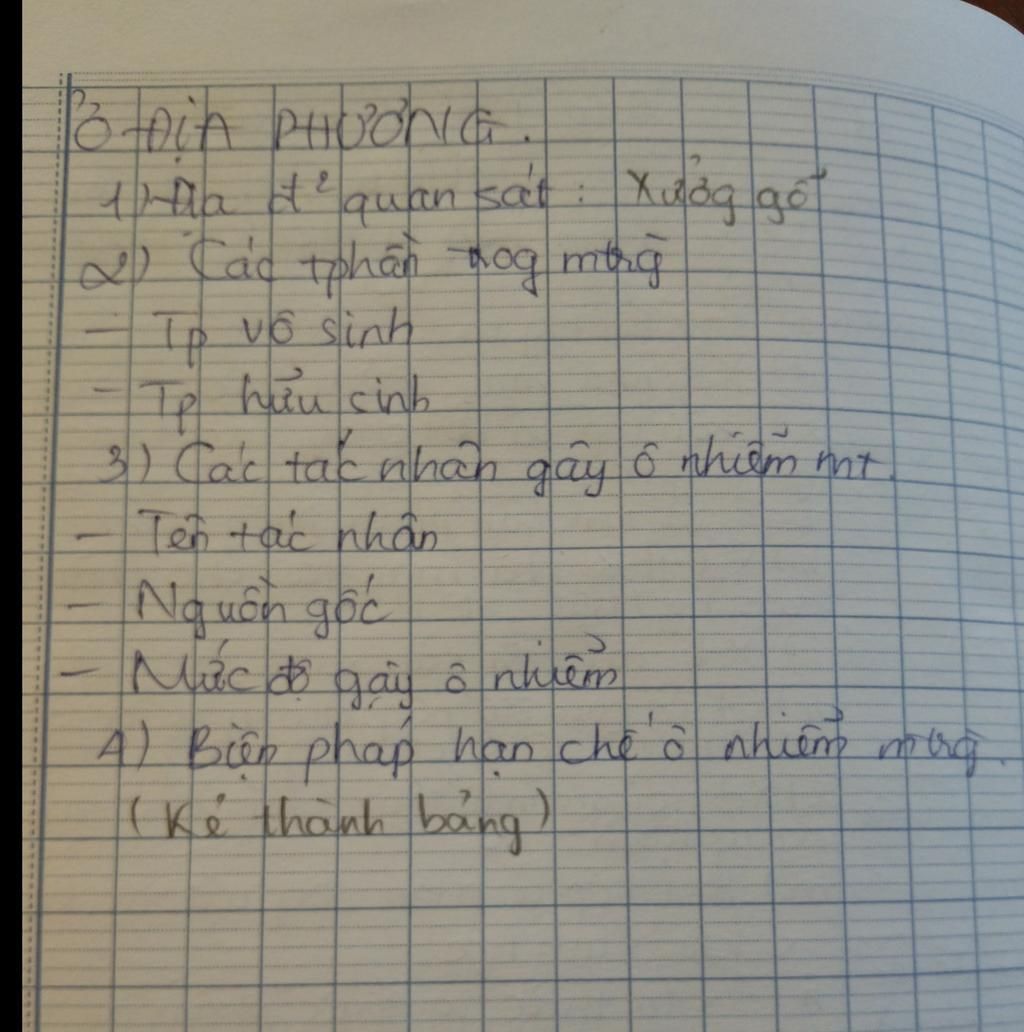 Ở ĐỊA PHƯƠNG.
1) Địa đ² quan sát : Xưởng gỗ
2) Các tphần trog mtrg
- Tp vô sinh
- Tp hữu sinh
3) Các tác nhân gây ô nhiễm mt.
- Tên tác nhân
- Nguồn gốc
- Mức độ gây ô nhiễm
4) Biện pháp hạn chế ô nhiễm mtrg.
(Kẻ thành bảng)